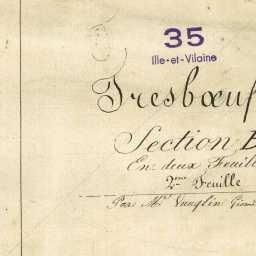 35
Ille-et-Vilaine
Tresbœuf
Section B
En deux Feuill
2me Feuille
Par Mr Vanglin Géom